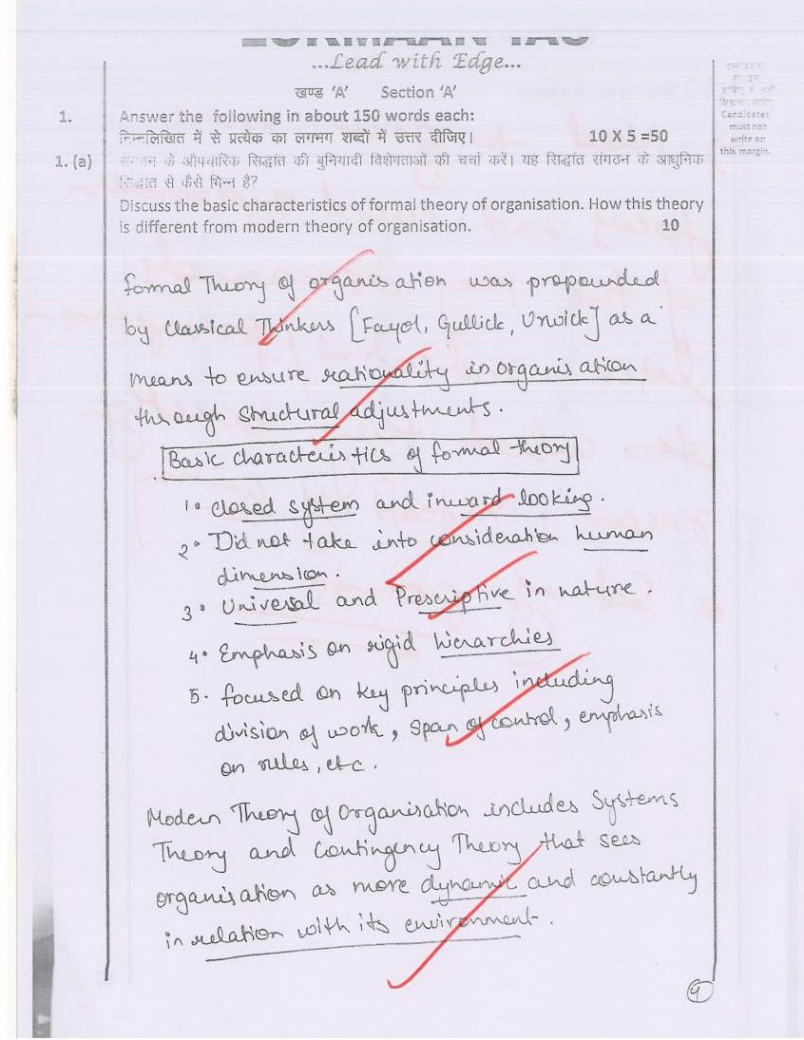 ...Lead with Edge...
खण्ड ‘A’ Section ‘A’
1. Answer the following in about 150 words each:
निम्नलिखित में से प्रत्येक का लगभग शब्दों में उत्तर दीजिए। 10 X 5 =50
1. (a) संगठन के औपचारिक सिद्धांत की बुनियादी विशेषताओं की चर्चा करें। यह सिद्धांत संगठन के आधुनिक
सिद्धांत से कैसे भिन्न है?
Discuss the basic characteristics of formal theory of organisation. How this theory
is different from modern theory of organisation. 10
Candidates
must not
write on
this margin.
Formal Theory of organisation was propounded
by Classical Thinkers [Fayol, Gullick, Urwick] as a
means to ensure rationality in organisation
through structural adjustments.
Basic characteristics of formal theory
1. Closed system and inward looking.
2. Did not take into consideration human
dimension.
3. Universal and Prescriptive in nature.
4. Emphasis on rigid hierarchies
5. focused on key principles including
division of work, span of control, emphasis
on rules, etc.
Modern Theory of Organisation includes Systems
Theory and Contingency Theory that sees
organisation as more dynamic and constantly
in relation with its environment.
4